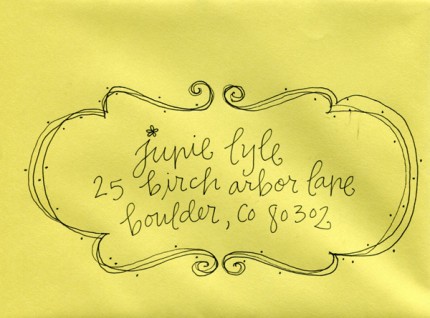 junie lyle
25 birch arbor lane
boulder, co 80302